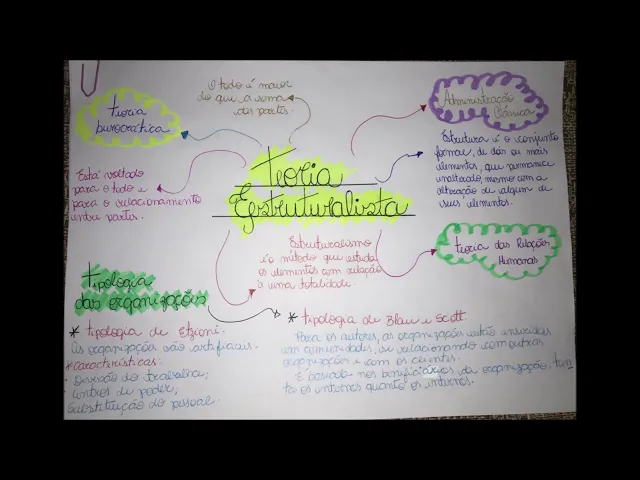 Teoria
Estruturalista
Teoria
burocrática
O todo é maior
do que a soma
das partes.
Administração
Clássica
Estrutura é o conjunto
formal, de dois ou mais
elementos, que permanece
inalterado, mesmo com a
alteração de algum de
seus elementos.
Está voltado
para o todo e
para o relacionamento
entre partes.
Teoria das Relações
Humanas
Estruturalismo
é o método que estuda
os elementos com relação
à uma totalidade.
Tipologia
das organizações
* Tipologia de Etzioni.
As organizações são artificiais.
* Características:
· Divisão do trabalho;
centros de poder;
substituição do pessoal.
* Tipologia de Blau e Scott.
Para os autores, as organizações estão inseridas
em comunidades, se relacionando com outras
organizações e com os clientes.
É baseada nos beneficiários da organização, tan
to os internos quanto os internos.